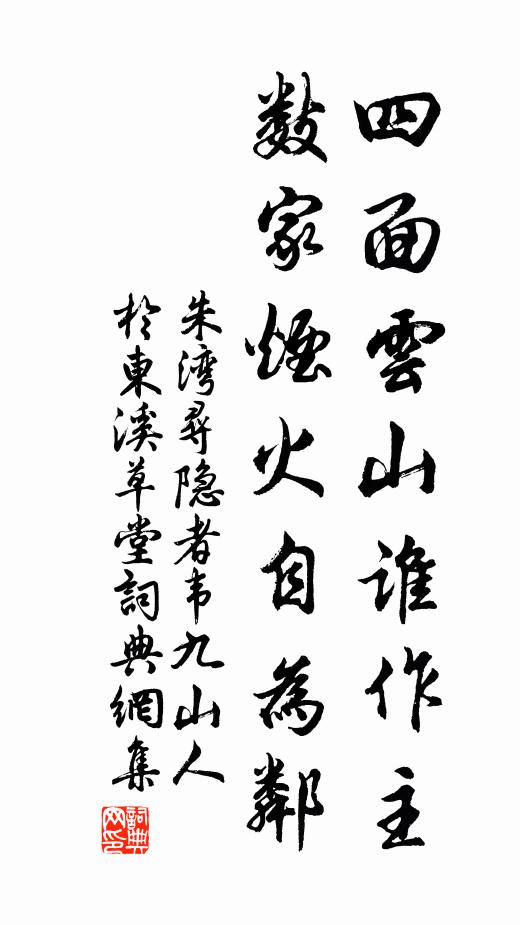 四面雲山誰作主
数家煙火自為鄰
朱湾尋隐者韦九山人
於東溪草堂詞典網集
詞典
网印